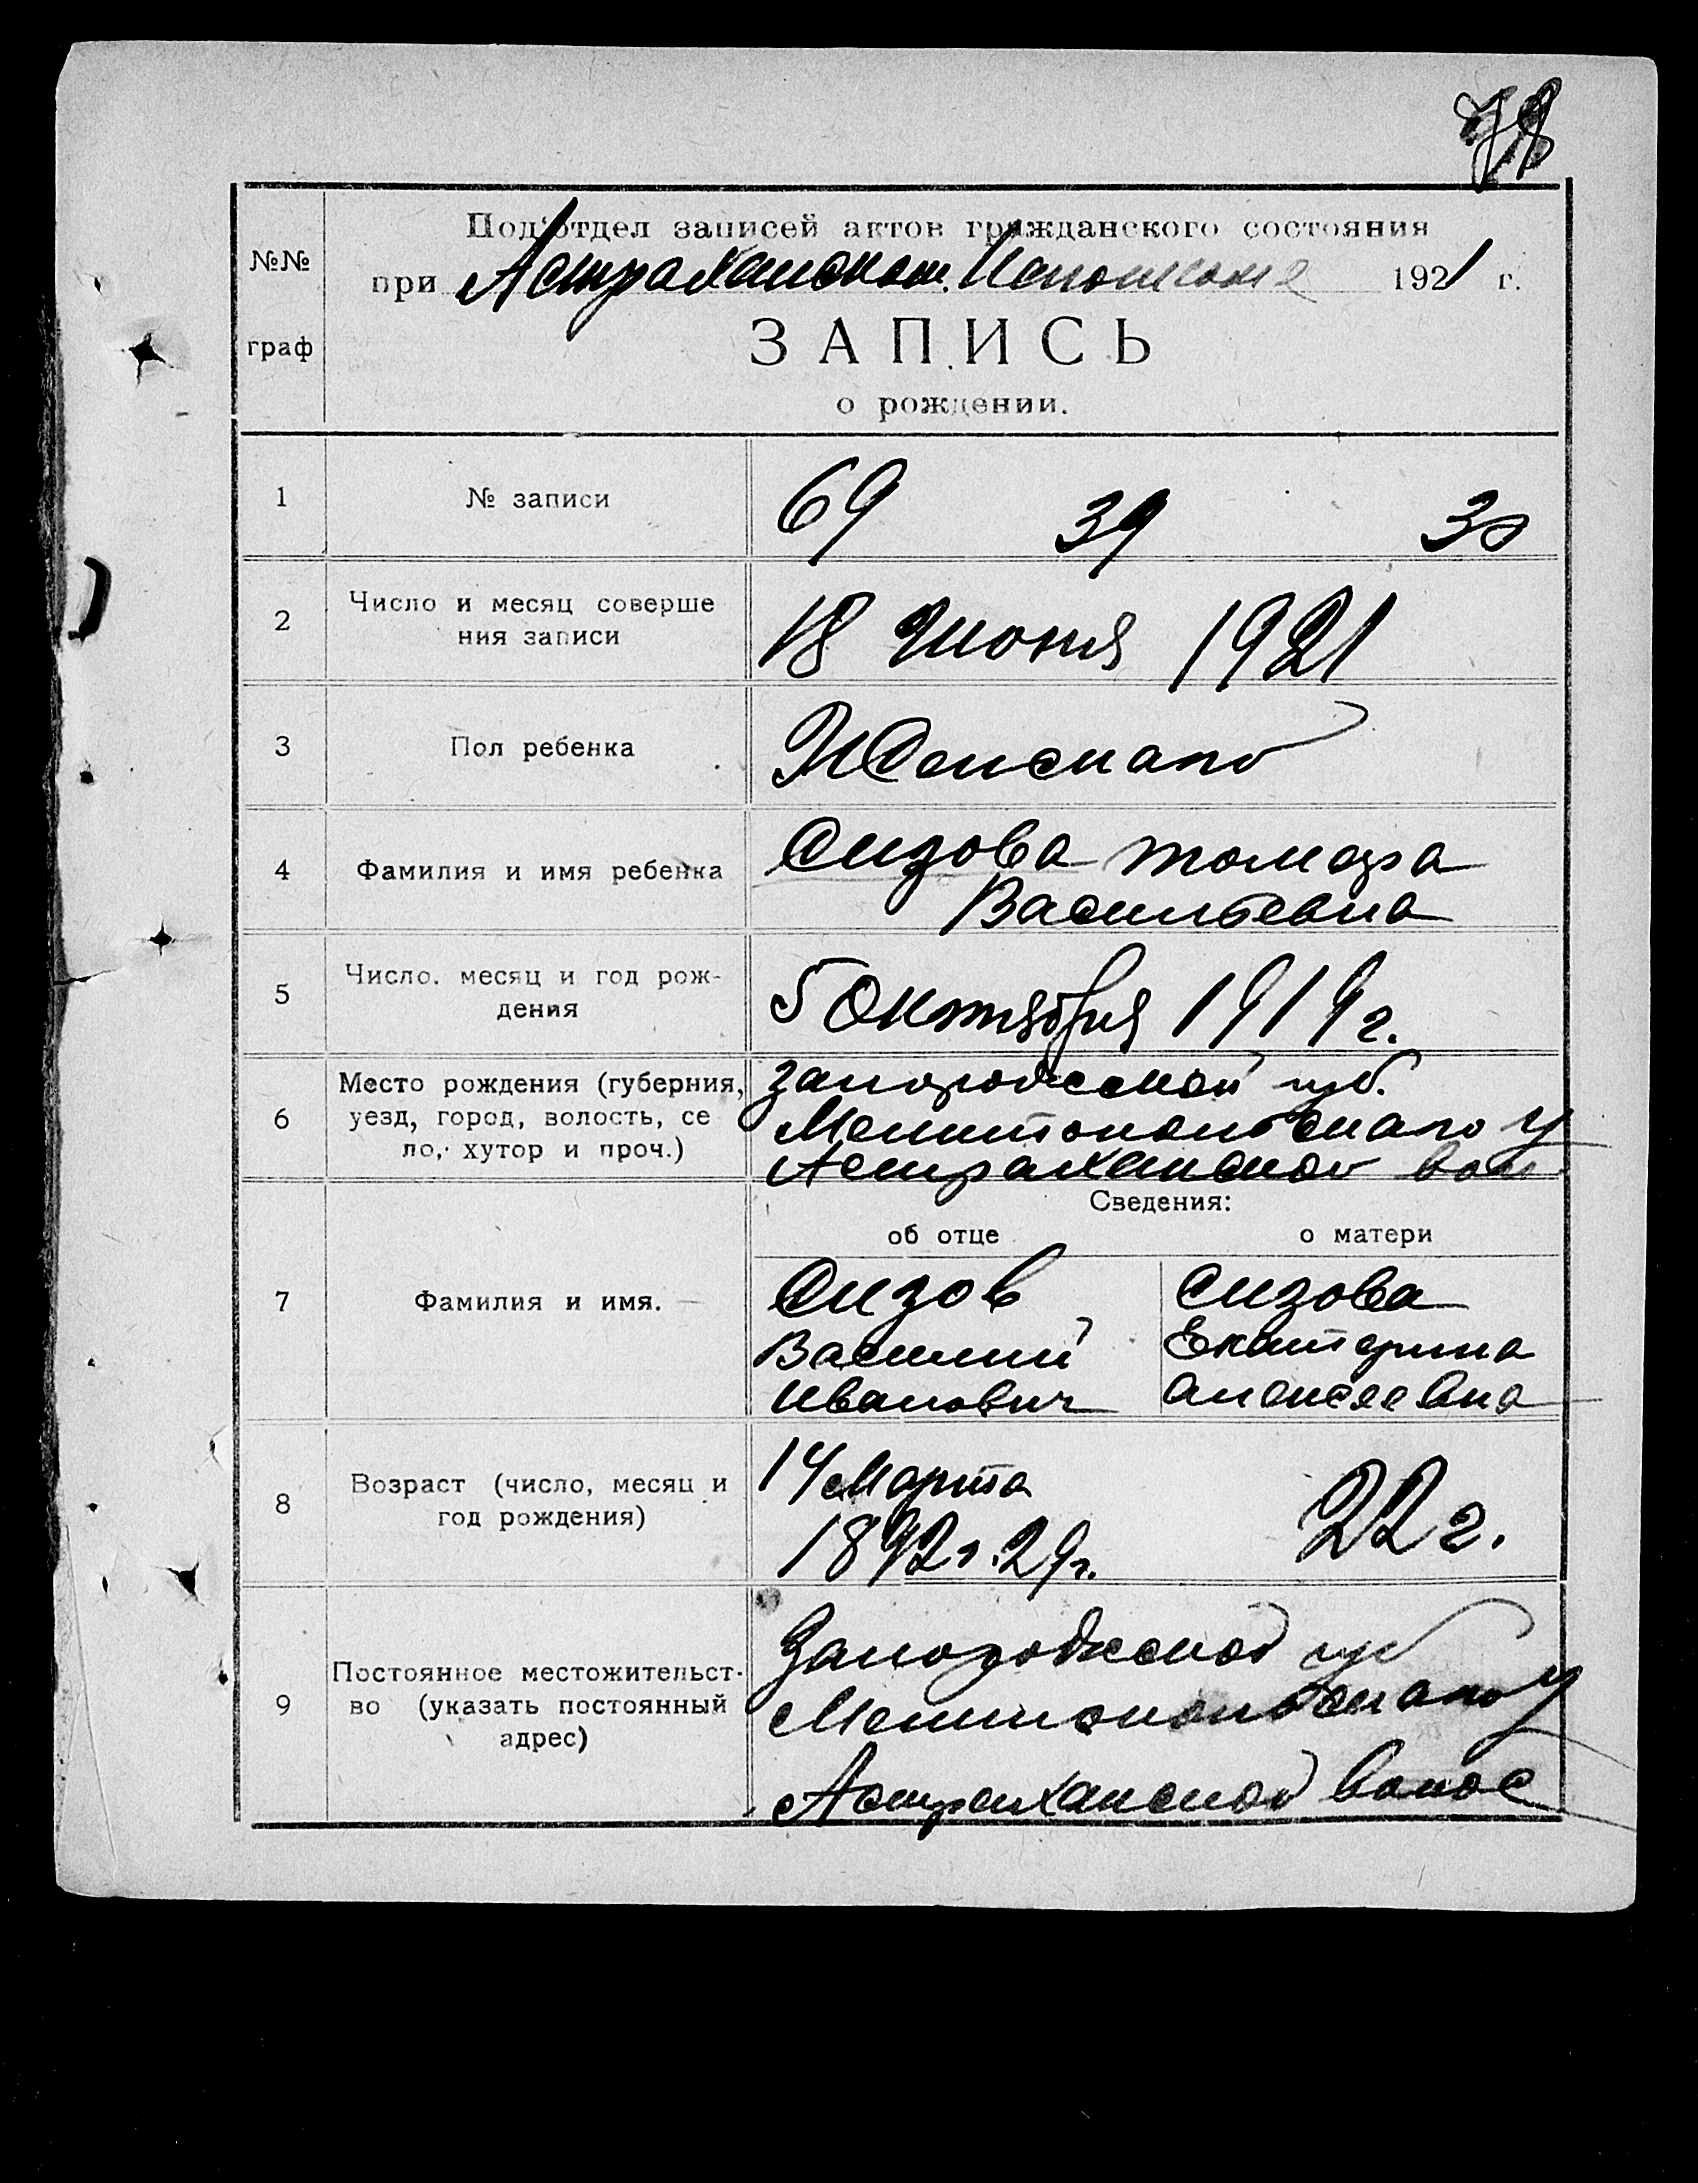 78
Под'отдел записей актов гражданского состояния
№№ при Астраханском Исполкоме 1921 г.
граф ЗАПИСЬ
о рождении.
1 № записи 69 39 30
2 Число и месяц соверше
ния записи 18 Июня 1921
3 Пол ребенка Женскаго
4 Фамилия и имя ребенка Сизова Томара
Васильевна
5 Число. месяц и год рож-
дения 5 Октября 1919 г.
6 Место рождения (губерния, Запорожской губ.
уезд, город, волость, се Мелитопольскаго у
ло, хутор и проч.) Астраханской вол
Сведения:
об отце о матери
7 Фамилия и имя. Сизов Сизова
Василий Екатерина
Иванович Алексеевна
8 Возраст (число, месяц и 14 Марта
год рождения) 1892 г. 29 г. 22 г.
9 Постоянное местожительст- Запорожской губ
во (указать постоянный Мелитопольскаго у
адрес) Астраханской волос